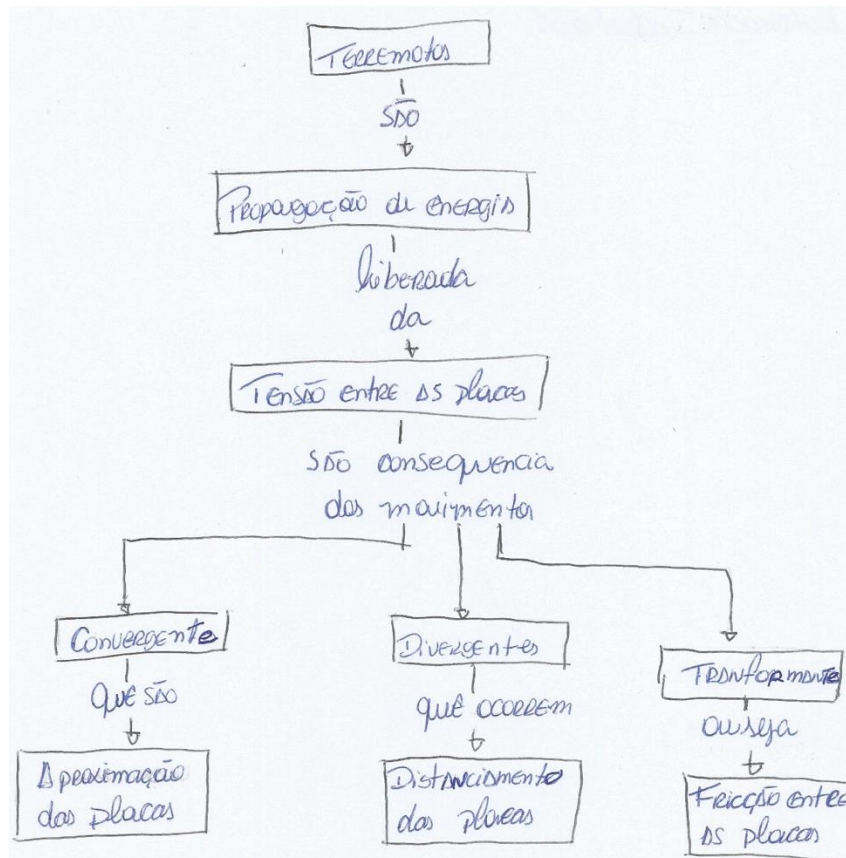 Terremotos
são
Propagação de energia
liberada
da
Tensão entre as placas
são consequencia
dos movimentos
Convergente
que são
Aproximação
das placas
Divergentes
que ocorrem
Distanciamento
das placas
Tranformante
ou seja
Fricção entre
as placas